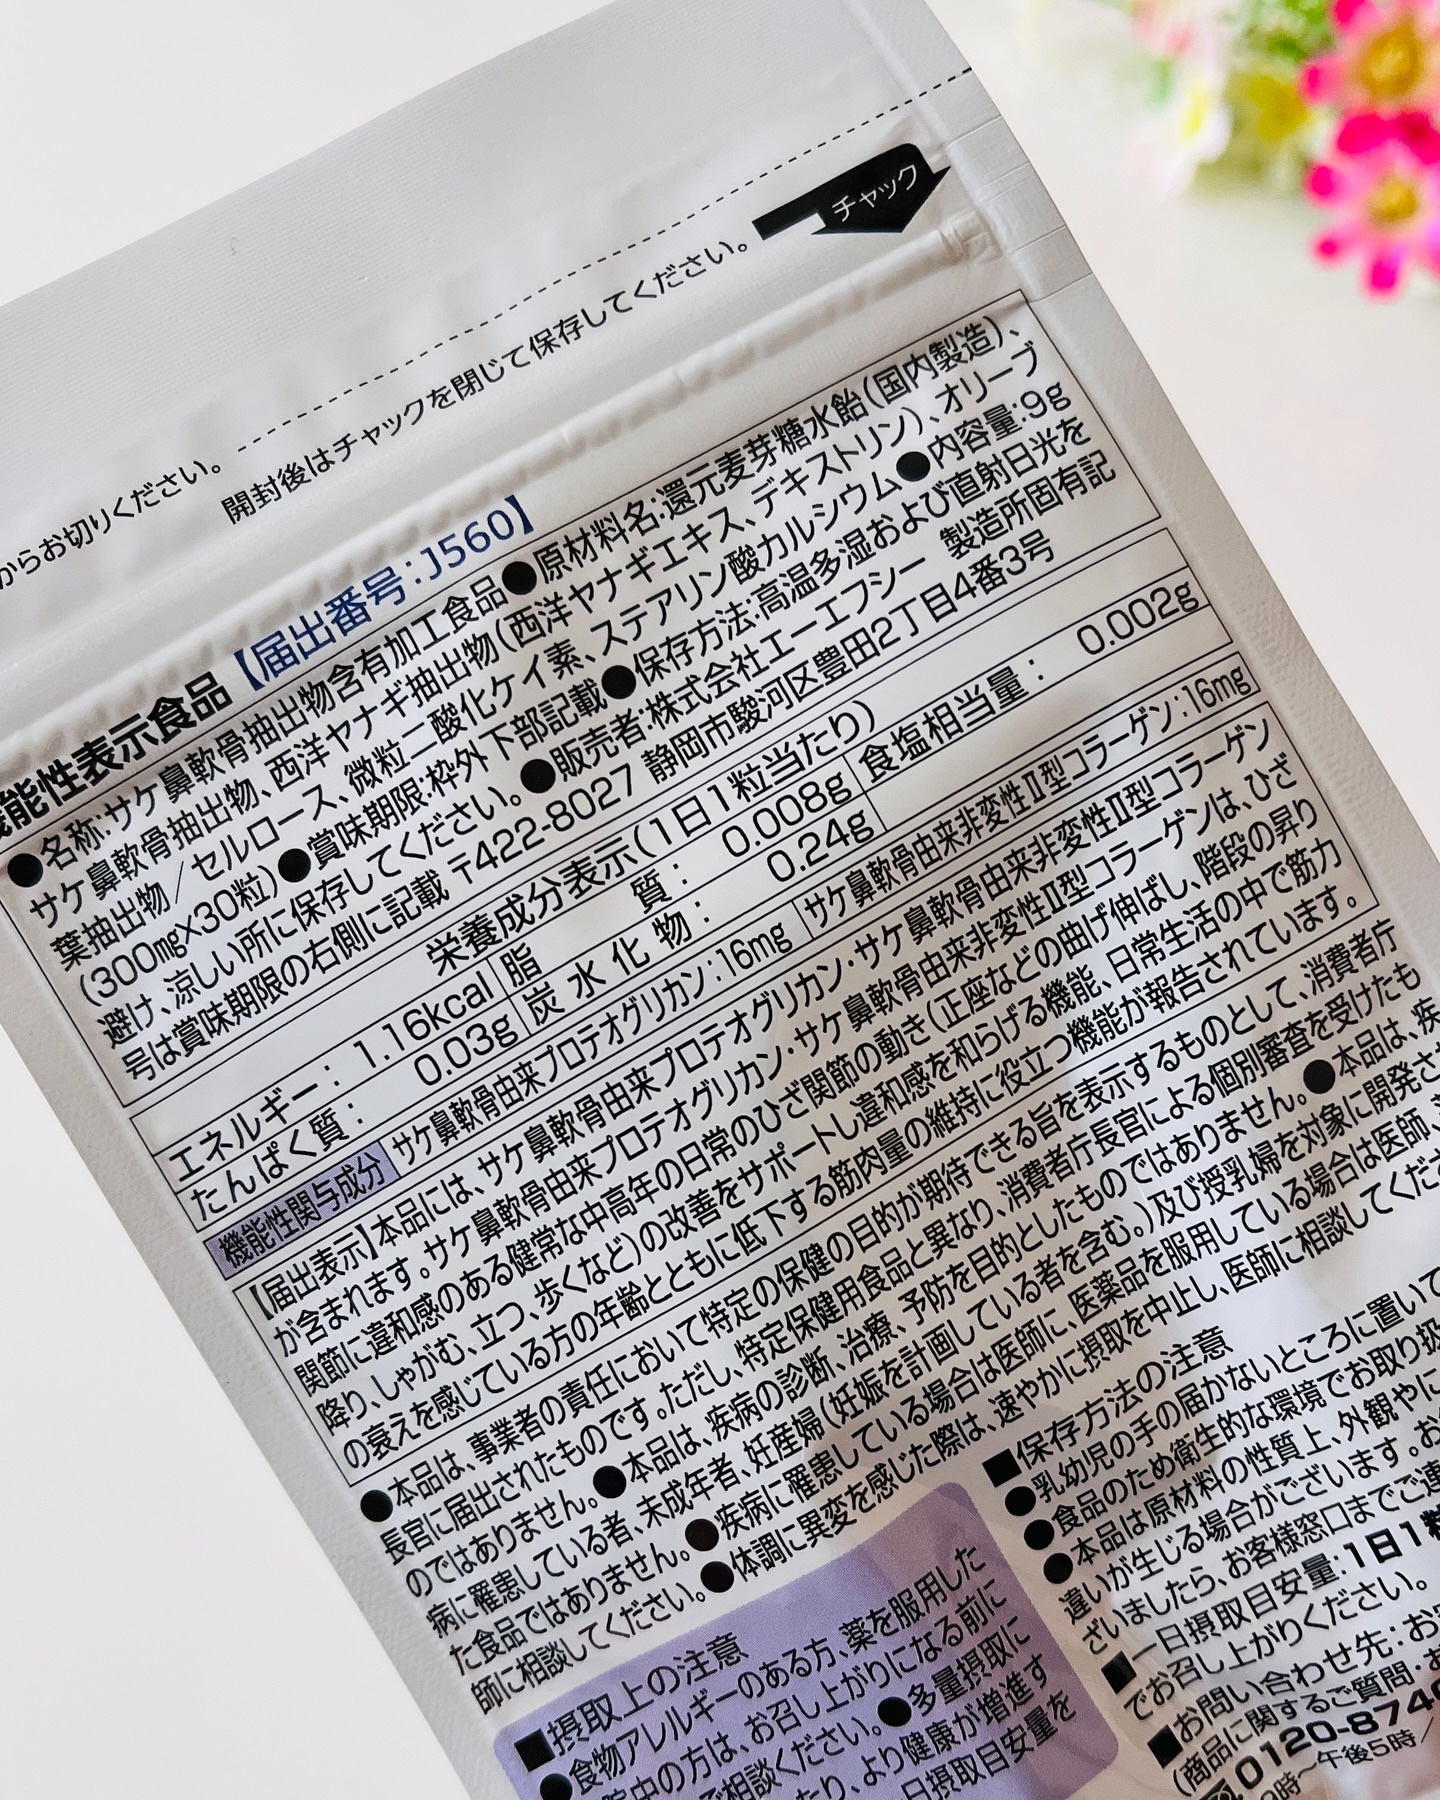 からお切りください。
チャック
開封後はチャックを閉じて保存してください。
能性表示食品【届出番号:J560】
●名称:サケ鼻軟骨抽出物含有加工食品●原材料名:還元麦芽糖水飴(国内製造)、
サケ鼻軟骨抽出物、西洋ヤナギ抽出物(西洋ヤナギエキス、デキストリン)、オリーブ
葉抽出物/セルロース、微粒二酸化ケイ素、ステアリン酸カルシウム●内容量:9g
(300mg×30粒)●賞味期限:枠外下部記載●保存方法:高温多湿および直射日光を
避け、涼しい所に保存してください。●販売者:株式会社エーエフシー 製造所固有記
号は賞味期限の右側に記載 〒422-8027 静岡市駿河区豊田2丁目4番3号
栄養成分表示(1日1粒当たり)
エネルギー: 1.16kcal 脂 質: 0.008g 食塩相当量: 0.002g
たんぱく質: 0.03g 炭水化物: 0.24g
機能性関与成分 サケ鼻軟骨由来プロテオグリカン:16mg サケ鼻軟骨由来非変性Ⅱ型コラーゲン:16mg
【届出表示】本品には、サケ鼻軟骨由来プロテオグリカン・サケ鼻軟骨由来非変性Ⅱ型コラーゲン
が含まれます。サケ鼻軟骨由来プロテオグリカン・サケ鼻軟骨由来非変性Ⅱ型コラーゲンは、ひざ
関節に違和感のある健常な中高年の日常のひざ関節の動き(正座などの曲げ伸ばし、階段の昇り
降り、しゃがむ、立つ、歩くなど)の改善をサポートし違和感を和らげる機能、日常生活の中で筋力
の衰えを感じている方の年齢とともに低下する筋肉量の維持に役立つ機能が報告されています。
●本品は、事業者の責任において特定の保健の目的が期待できる旨を表示するものとして、消費者庁
長官に届出されたものです。ただし、特定保健用食品と異なり、消費者庁長官による個別審査を受けたも
のではありません。●本品は、疾病の診断、治療、予防を目的としたものではありません。●本品は、疾
病に罹患している者、未成年者、妊産婦(妊娠を計画している者を含む。)及び授乳婦を対象に開発さ
た食品ではありません。●疾病に罹患している場合は医師に、医薬品を服用している場合は医師、
師に相談してください。●体調に異変を感じた際は、速やかに摂取を中止し、医師に相談してくだ
■摂取上の注意
●食物アレルギーのある方、薬を服用した
院中の方は、お召し上がりになる前に
ご相談ください。●多量摂取に
たり、より健康が増進す
日摂取目安量を
■保存方法の注意
●乳幼児の手の届かないところに置いて
●食品のため衛生的な環境でお取り扱
●本品は原材料の性質上、外観やに
違いが生じる場合がございます。お
ざいましたら、お客様窓口までご連
■一日摂取目安量:1日1粒
でお召し上がりください。
■お問い合わせ先:お
(商品に関するご質問・お
0120-874
9時〜午後5時/